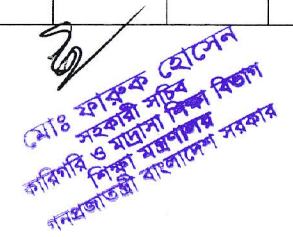 মোঃ ফারুক হোসেন
সহকারী সচিব
কারিগরি ও মাদ্রাসা শিক্ষা বিভাগ
শিক্ষা মন্ত্রণালয়
গনপ্রজাতন্ত্রী বাংলাদেশ সরকার